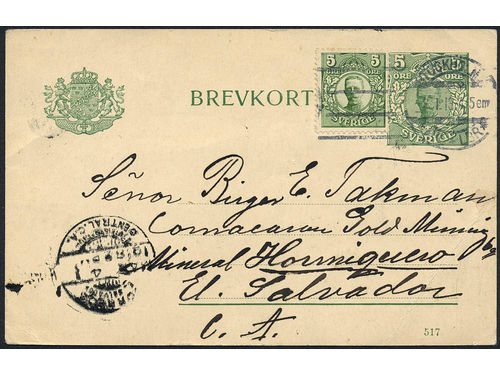 BREVKORT
5 5
ÖRE
SVERIGE
5 5
ÖRE
SVERIGE
Señor Birger E. Takman
Comacaran Gold Mining
Mineral Hormiguero
El Salvador
C. A.
517